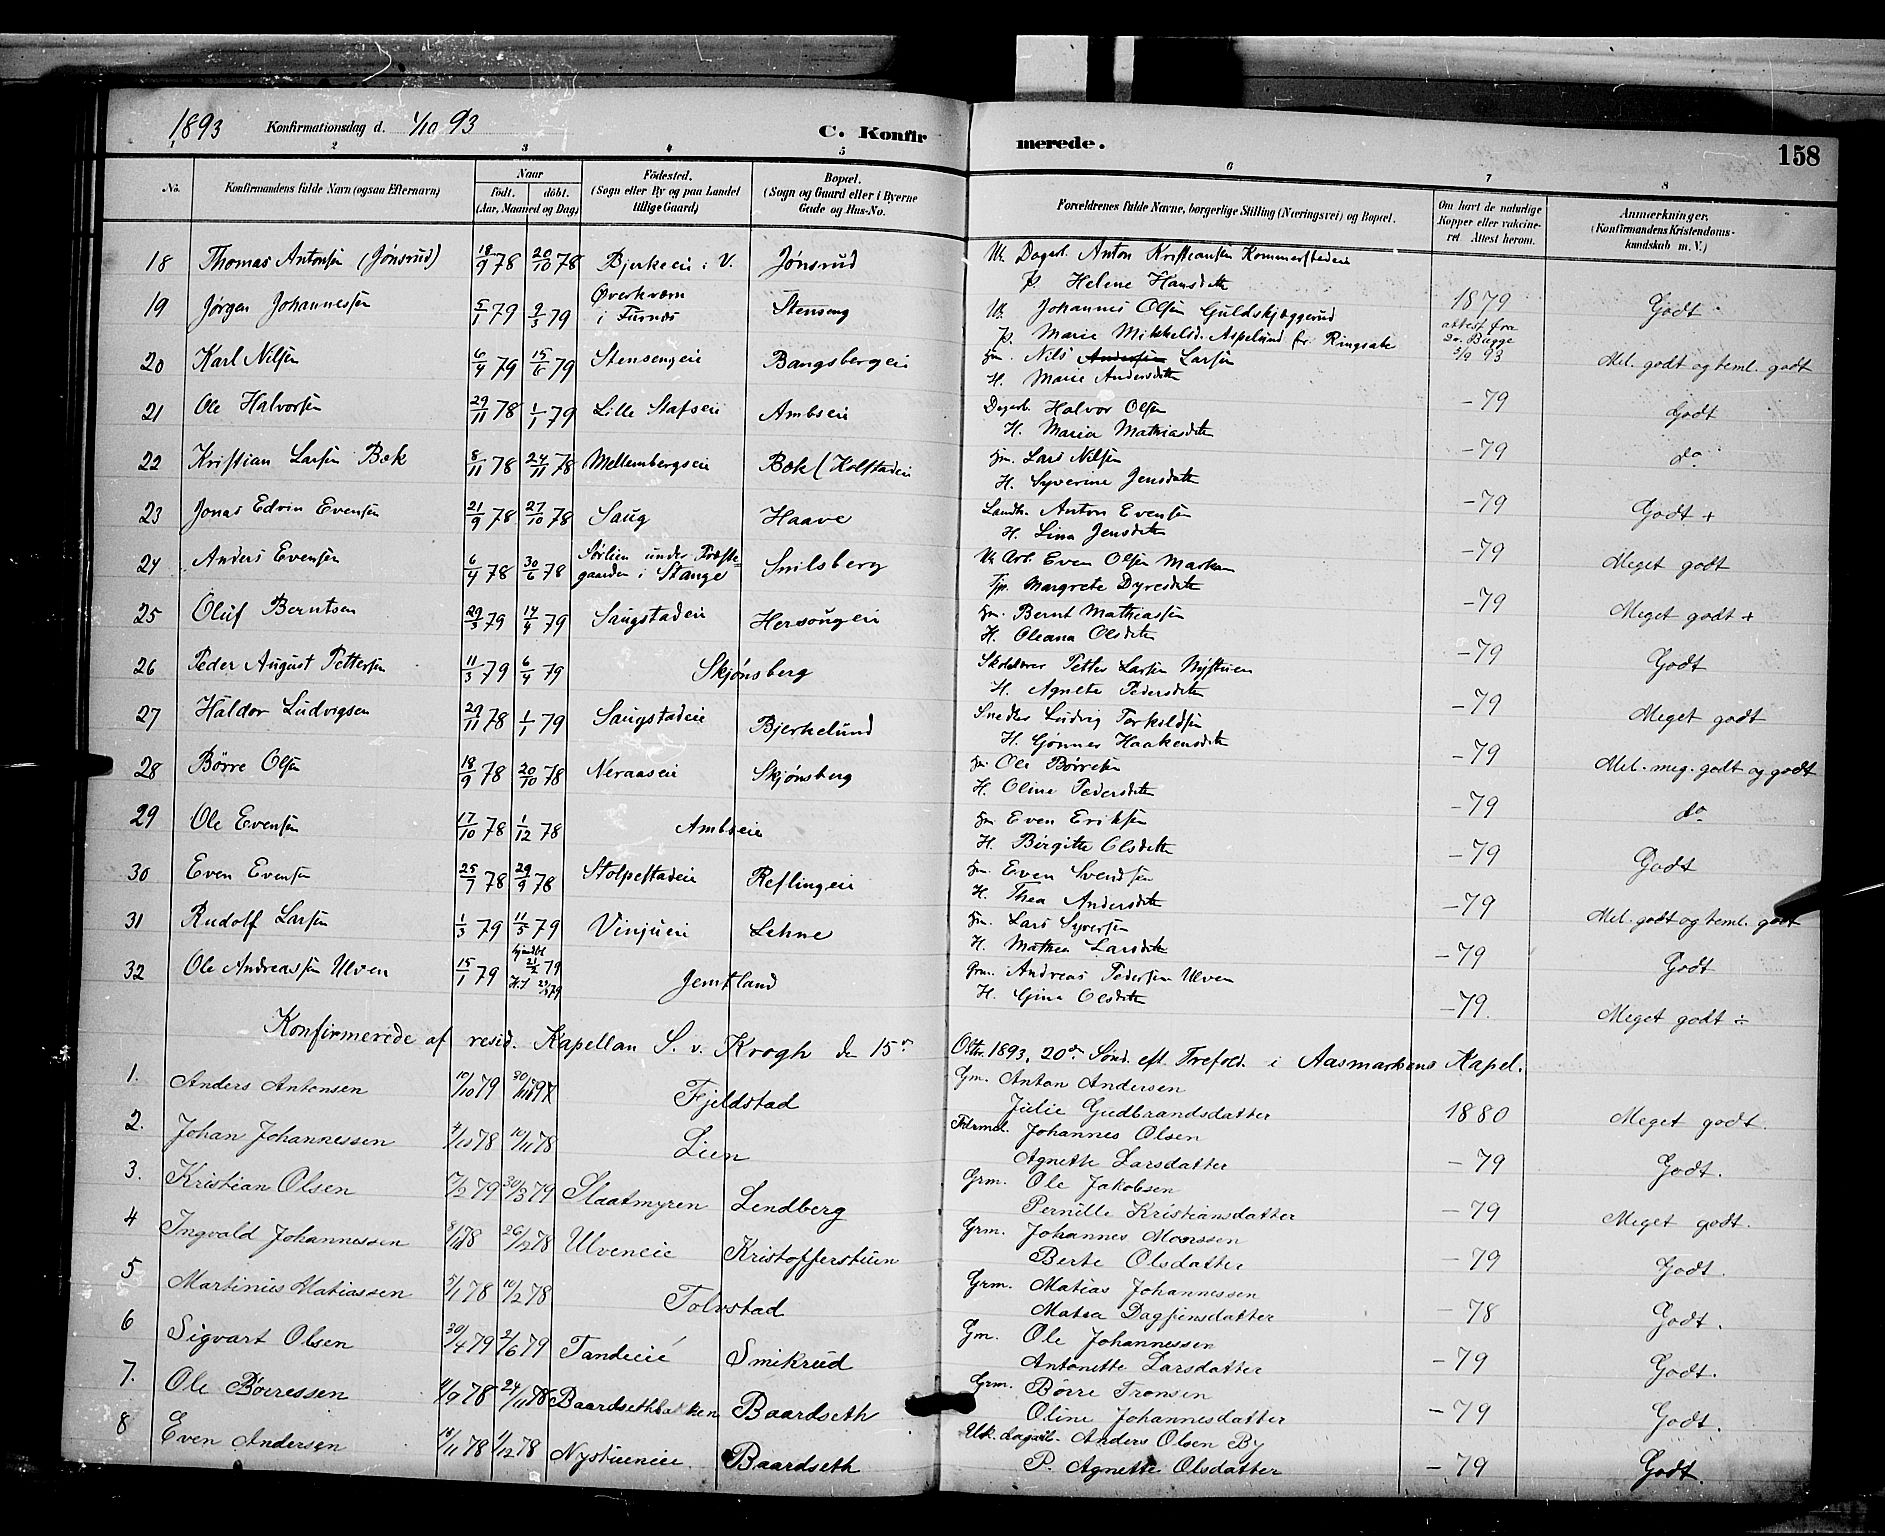 1893 Konfirmationsdag d. 1/10 93 C. Konfirmerede. 158
2 3 4 5 6 7 8
No. Konfirmandens fulde Navn (ogsaa Efternavn) Naar født. døbt. (Aar, Maaned og Dag) Fødested. (Sogn eller By og paa Landet tillige Gaard) Bopæl. (Sogn og Gaard eller i Byerne Gade og Hus-No. Forældrenes fulde Navne, borgerlige Stilling (Næringsvei) og Bopæl. Om havt de naturlige Kopper eller vakcineret Attest herom. Anmærkninger. (Konfirmandens Kristendomskundskab m. V.)
18 Thomas Antonsen (Jønsrud) 18/9 78 20/10 78 Bjerkeeie i V. Jønsrud Uk. Dagarb. Anton Kristiansen Kommerstadeie
P. Helene Hansdtr 1879 Godt
19 Jørgen Johannessen 5/1 79 2/3 79 Øverkværn i Furnæs Stenseng Uk. Johannes Olsen Guldskjæggerud
P. Marie Mikkelsd. Aspelund br. Ringsake attest fra Dr. Bugge 5/9 93 Mel. godt og teml. godt
20 Karl Nilsen 6/4 79 15/6 79 Stensengeie Bangsbergeie Hm. Nils Andersen Larsen
H. Marie Andersdtr -79 Godt
21 Ole Halvorsen 29/11 78 1/1 79 Lille Stafseie Ambseie Dagarb. Halvor Olsen
H. Maria Mathiasdtr -79 do
22 Kristian Larsen Bæk 8/11 78 24/11 78 Mellembergseie Bæk (Kolstadeie Hm. Lars Nilsen
H. Syverine Jensdtr -79 Godt +
23 Jonas Edvin Evensen 21/9 78 27/10 78 Saug Haave Landh. Anton Evensen
H. Lina Jensdtr -79 Meget godt
24 Anders Evensen 6/4 78 30/6 78 Sørlien under Præstegaarden i Stange Snilsberg Uk. Arb. Even Olsen Marken
Fp. Margrete Dyresdtr -79 Meget godt +
25 Oluf Berntsen 29/3 79 14/4 79 Saugstadeie Hersougeie Hm. Bernt Mathiassen
H. Oleana Olsdtr -79 Godt
26 Peder August Pettersen 11/3 79 6/4 79 Skjønsberg Skolelærer Petter Larsen Nystuen
H. Agnete Pedersdtr -79 Meget godt
27 Haldor Ludvigsen 29/11 78 1/1 79 Saugstadeie Bjerkelund Snedker Ludvig Torkildsen
H. Gønner Haakensdtr -79 Mel. meg. godt og godt
28 Børre Olsen 18/9 78 20/10 78 Neraaseie Skjønsberg Hm. Ole Børresen
H. Oline Pedersdtr -79 do
29 Ole Evensen 17/10 78 1/12 78 Ambseie Hm. Even Eriksen
H. Birgitte Olsdtr -79 Godt
30 Even Evensen 25/7 78 29/9 78 Stolpestadeie Reflingeie Hm. Even Svendsen
H. Thea Andersdtr -79 Mel. godt og teml. godt
31 Rudolf Larsen 1/3 79 11/5 79 Vinjueie Lehne Hm. Lars Syversen
H. Mathea Larsdtr -79 Godt
32 Ole Andreassen Ulven 15/1 79 hjmdbt 21/2 79 Jemtland Grm. Andreas Pedersen Ulven
H. Gina Olsdtr -79. Meget godt ÷
Konfirmerede af resid. Kapellan S. v. Krogh den 15de Oktbr. 1893, 20de Sønd. eft. Trefold. i Aasmarkens Kapel.
1. Anders Antonsen 10/10 79 30/11 79 Fjeldstad Gm. Anton Andersen
Julie Gudbrandsdatter 1880 Meget godt.
2. Johan Johannessen 4/10 78 10/11 78 Lien Johannes Olsen
Agnette Larsdatter -79 Godt.
3. Kristian Olsen 7/2 79 30/3 79 Slaatmyren Lundberg Grm. Ole Jakobsen
Pernille Kristiansdatter -79 Meget godt.
4 Ingvald Johannessen 26/12 78 Ulveneie Kristofferstuen Grm. Johannes Monssen
Berte Olsdatter -79 Godt.
5 Martinius Matiassen 5/1 78 10/2 78 Tolvstad Grm. Matias Johannessen
Matea Dagfinsdatter -78 Godt.
6 Sigvart Olsen 30/4 79 2/6 79 Tandeeie Smikrud Gm. Ole Johannessen
Antonette Larsdatter -79 Godt.
7. Ole Børressen 4/9 78 24/11 78 Baardsethbakken Baardseth Grm. Børre Tronsen
Oline Johannesdatter -79 Godt.
8 Even Andersen 10/11 78 1/12 78 Nystueneie. Baardseth Uk. dagarb. Anders Olsen By
P. Agnette Olsdatter -79 Godt.